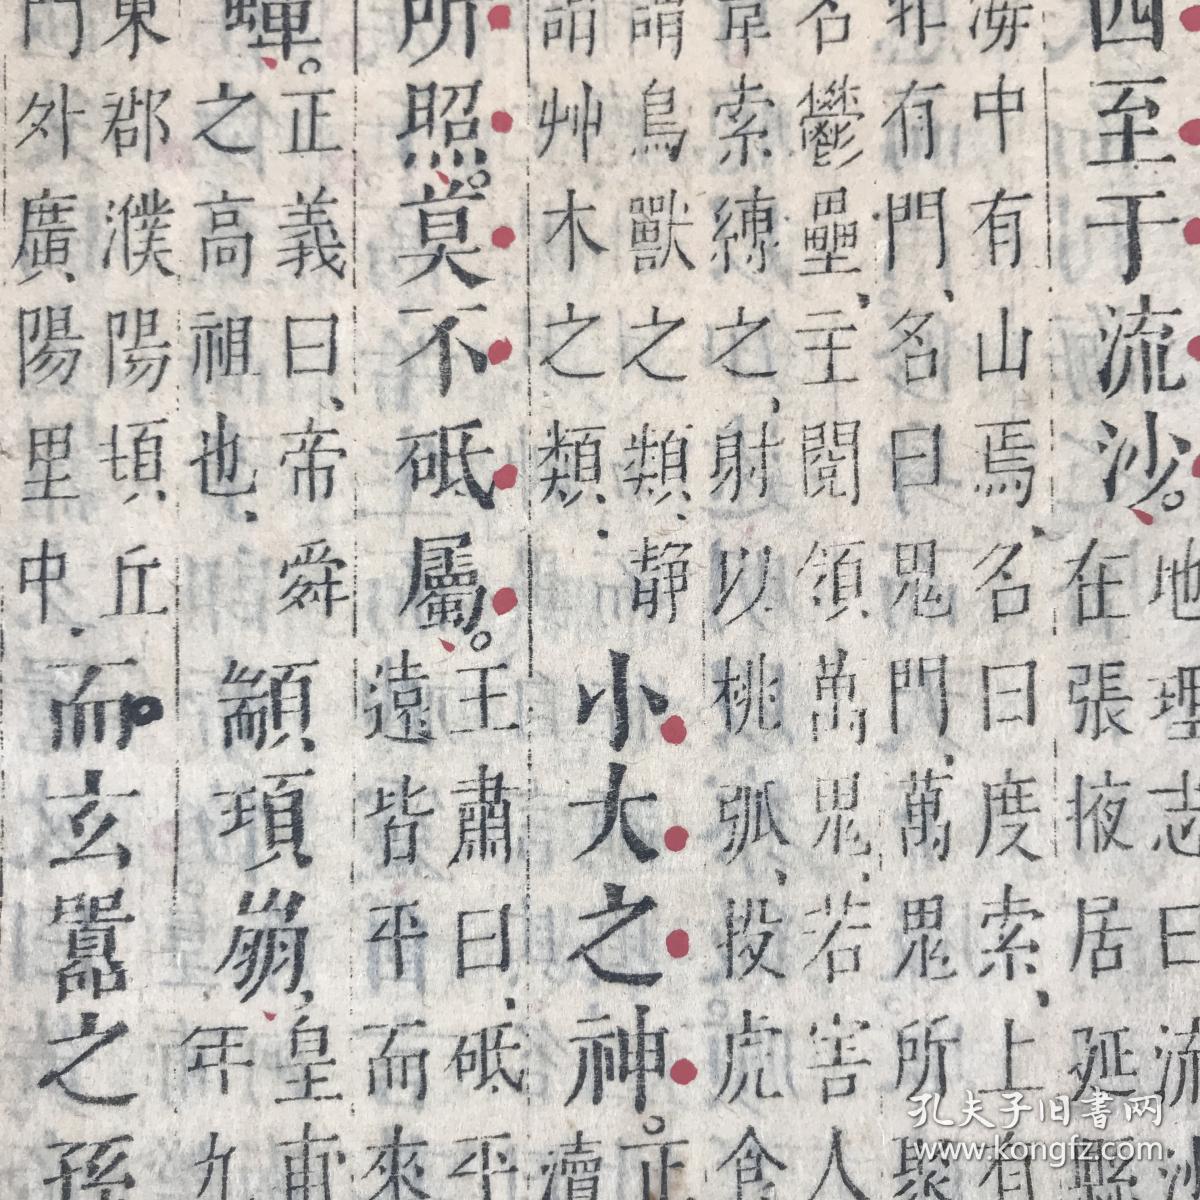 四至于流沙。
地理志曰流沙
在張掖居延縣
海中有山焉、名曰度索、上有
北有門、名曰鬼門、萬鬼所聚
名鬱壘、主閱領萬鬼、若害人
韋索縛之、射以桃弧、投虎食
謂鳥獸之類、靜
謂艸木之類、
小大之神。
正
瀆
所照莫不砥屬。
王肅曰、砥平
遠皆平而來
蟬。
正義曰、帝舜
之高祖也、
顓頊崩、
皇甫
年九
東郡濮陽頊丘
門外廣陽里中、
而玄囂之孫
孔夫子旧書网
www.kongfz.com